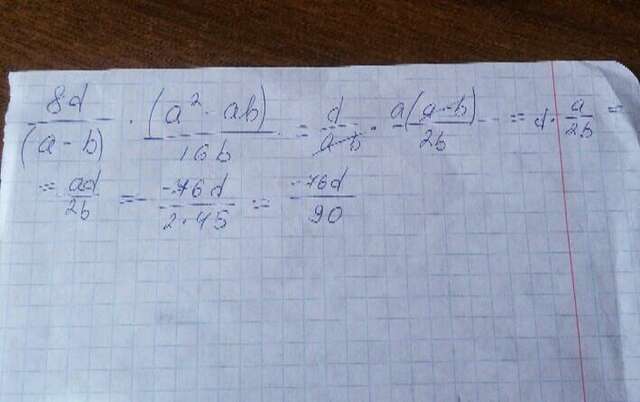 8d/(a-b) · (a² - ab)/16b = d/(a-b) · a(a-b)/2b = d · a/2b =
= ad/2b = -76d/2·45 = -76d/90